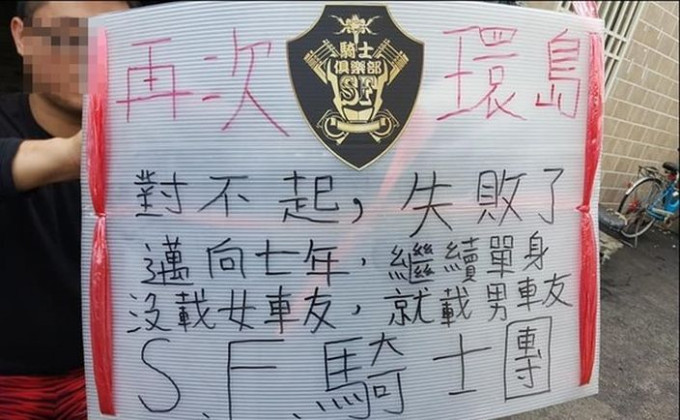 再次 環島
騎士
俱樂部
SF
對不起，失敗了
邁向七年，繼續單身
沒載女車友，就載男車友
S.F.騎士團